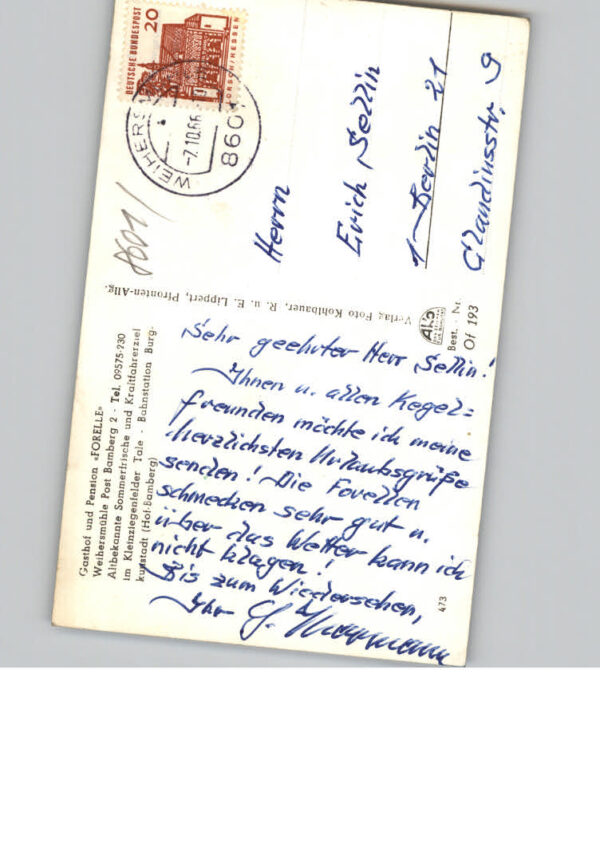 DEUTSCHE BUNDESPOST
20
LORSCH/HESSEN
WEIHERSM
-7.10.66
8601
8601/
Herrn
Erich Sellin
1 Berlin 21
Claudiusstr. 9
Verlag Foto Kohlbauer, R. u. E. Lippert, Pfronten-Allg.
Best.-Nr
Of 193
Gasthof und Pension «FORELLE»
Weihersmühle Post Bamberg 2 - Tel. 09575-230
Altbekannte Sommerfrische und Kraftfahrerziel
im Kleinziegenfelder Tale - Bahnstation Burg-
kunstadt (Hof-Bamberg)
Sehr geehrter Herr Sellin!
Ihnen u. allen Kegel=
freunden möchte ich meine
herzlichsten Urlaubsgrüße
senden! Die Forellen
schmecken sehr gut u.
über das Wetter kann ich
nicht klagen!
Bis zum Wiedersehen,
Ihr G.
473